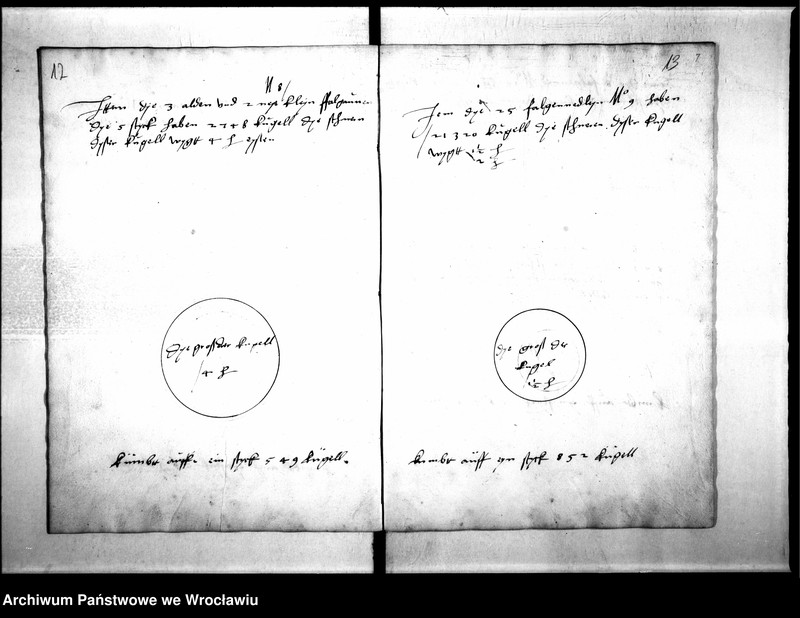 12
N 8
Item dye 3 alden vnd 2 neye kleyn
dye 5 styck haben 2748 kugell dye schweren
dyser kugell wygtt 4 h eysen
dye gross der kugell
4 h
kümbt auff ein styck 549 kügell.
13
Jem dye 25 falgennedlyn No 9 haben
21320 kugell dye schweren dyser kugell
wygtt
dye gross der
kugel
kumbt auff eyn styck 852 kugell
Archiwum Państwowe we Wrocławiu